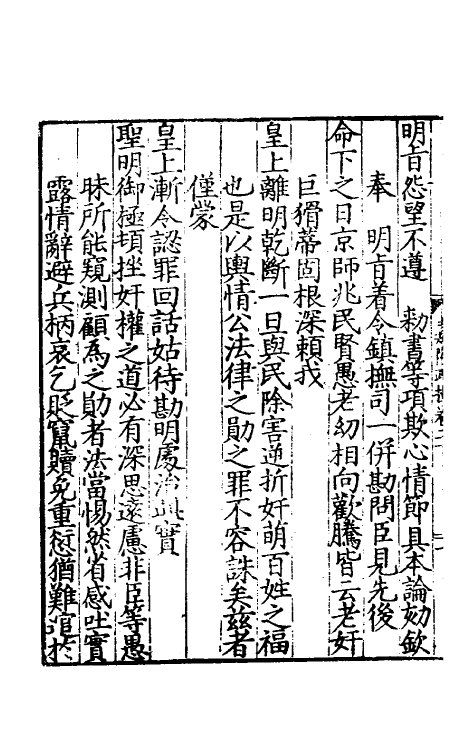 明旨怨望不遵　勑書等項欺心情節具本論劾欽
奉　明旨着令鎮撫司一併勘問臣見先後
命下之日京師兆民賢愚老幼相向歡騰皆云老奸
巨猾蒂固根深賴我
皇上離明乾斷一旦與民除害逆折奸萌百姓之福
也是以輿情公法律之勛之罪不容誅矣兹者
僅蒙
皇上漸令認罪回話姑待勘明處治典實
聖明御極頓挫奸權之道必有深思遠慮非臣等愚
昧所能窺測顧為之勛者法當惕然省感吐實
露情辭避兵柄哀乞貶竄贖免重愆猶難逭於